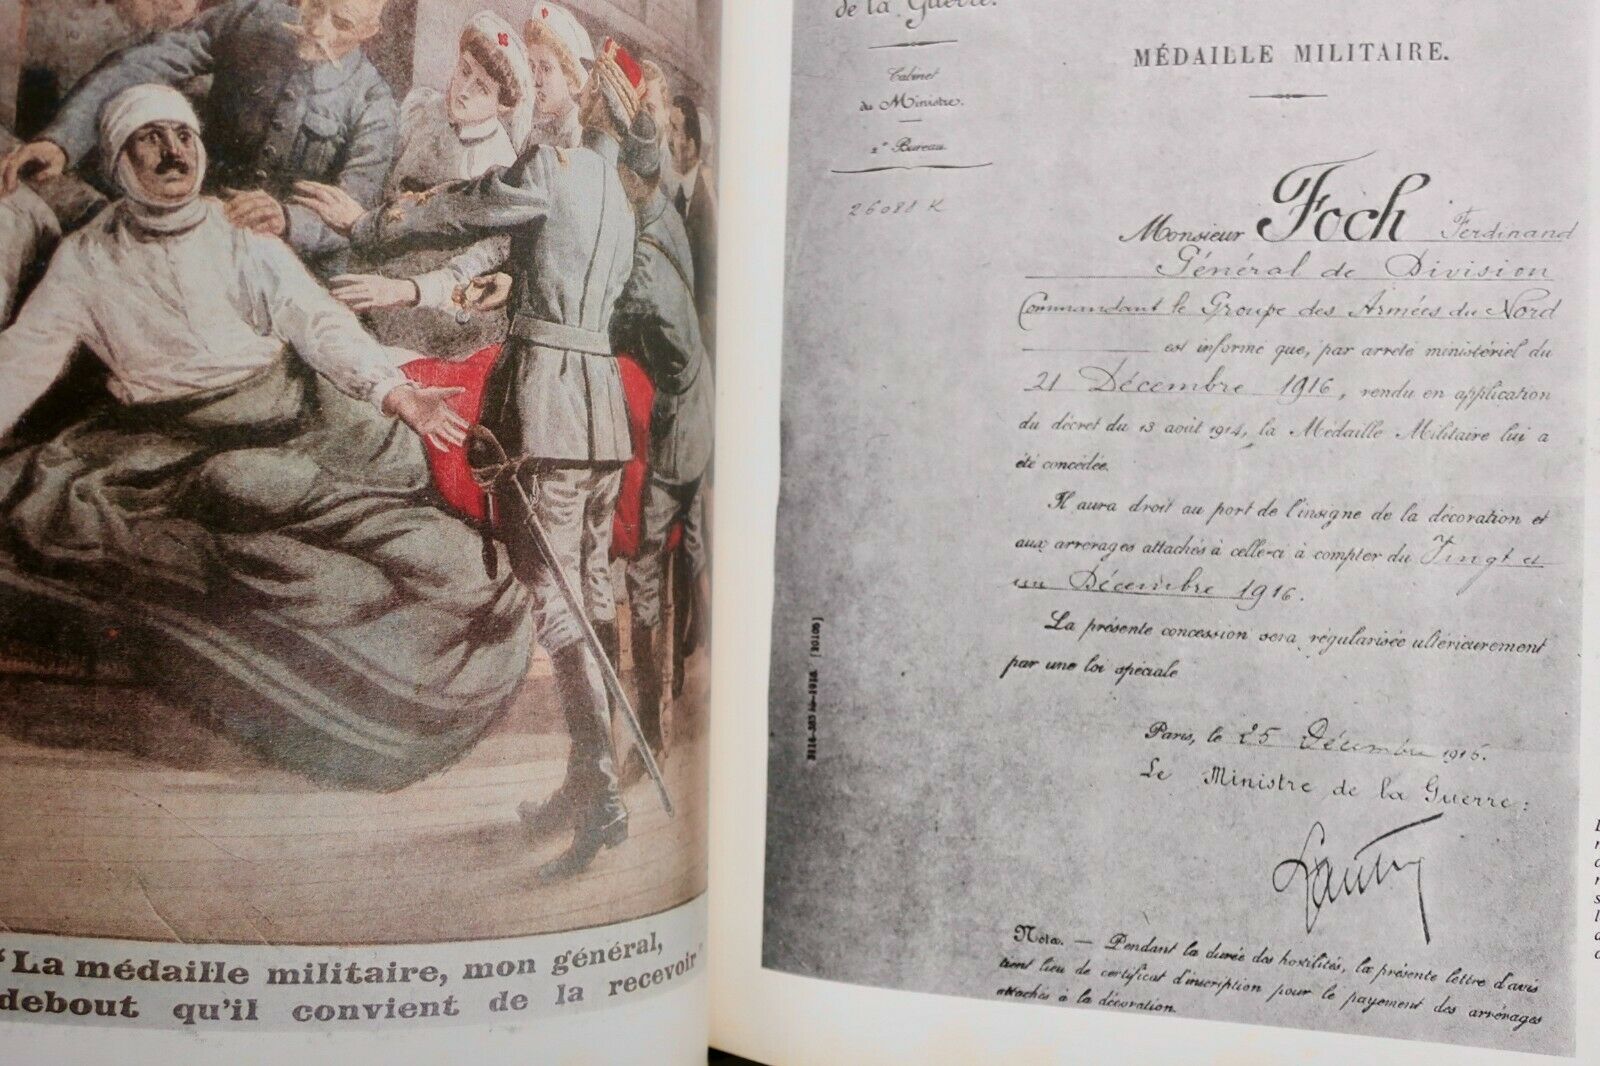 "La médaille militaire, mon général,
debout qu'il convient de la recevoir"
de la Guerre.
Cabinet
du Ministre.
2e Bureau.
26088 K
MÉDAILLE MILITAIRE.
Monsieur Foch Ferdinand
Général de Division
Commandant le Groupe des Armées du Nord
est informé que, par arrêté ministériel du
21 Décembre 1916, rendu en application
du décret du 13 août 1914, la Médaille Militaire lui a
été concédée.
Il aura droit au port de l'insigne de la décoration et
aux arrérages attachés à celle-ci à compter du Vingt et
un Décembre 1916.
La présente concession sera régularisée ultérieurement
par une loi spéciale
Paris, le 25 Décembre 1916.
Le Ministre de la Guerre:
Nota. — Pendant la durée des hostilités, la présente lettre d'avis
tient lieu de certificat d'inscription pour le payement des arrérages
attachés à la décoration.